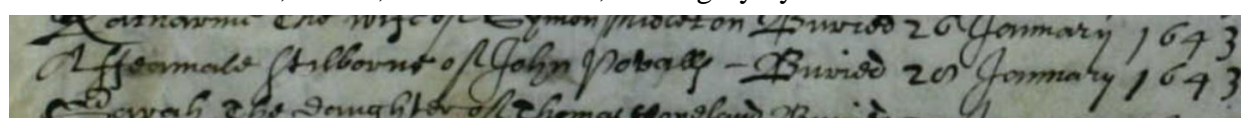 Katharine the wife of Symon Midleton Buried 26 January 1643
A ffeamale stilborne of John Povalls - Buried 28 January 1643
Sarah The daughter of Thomas Buried